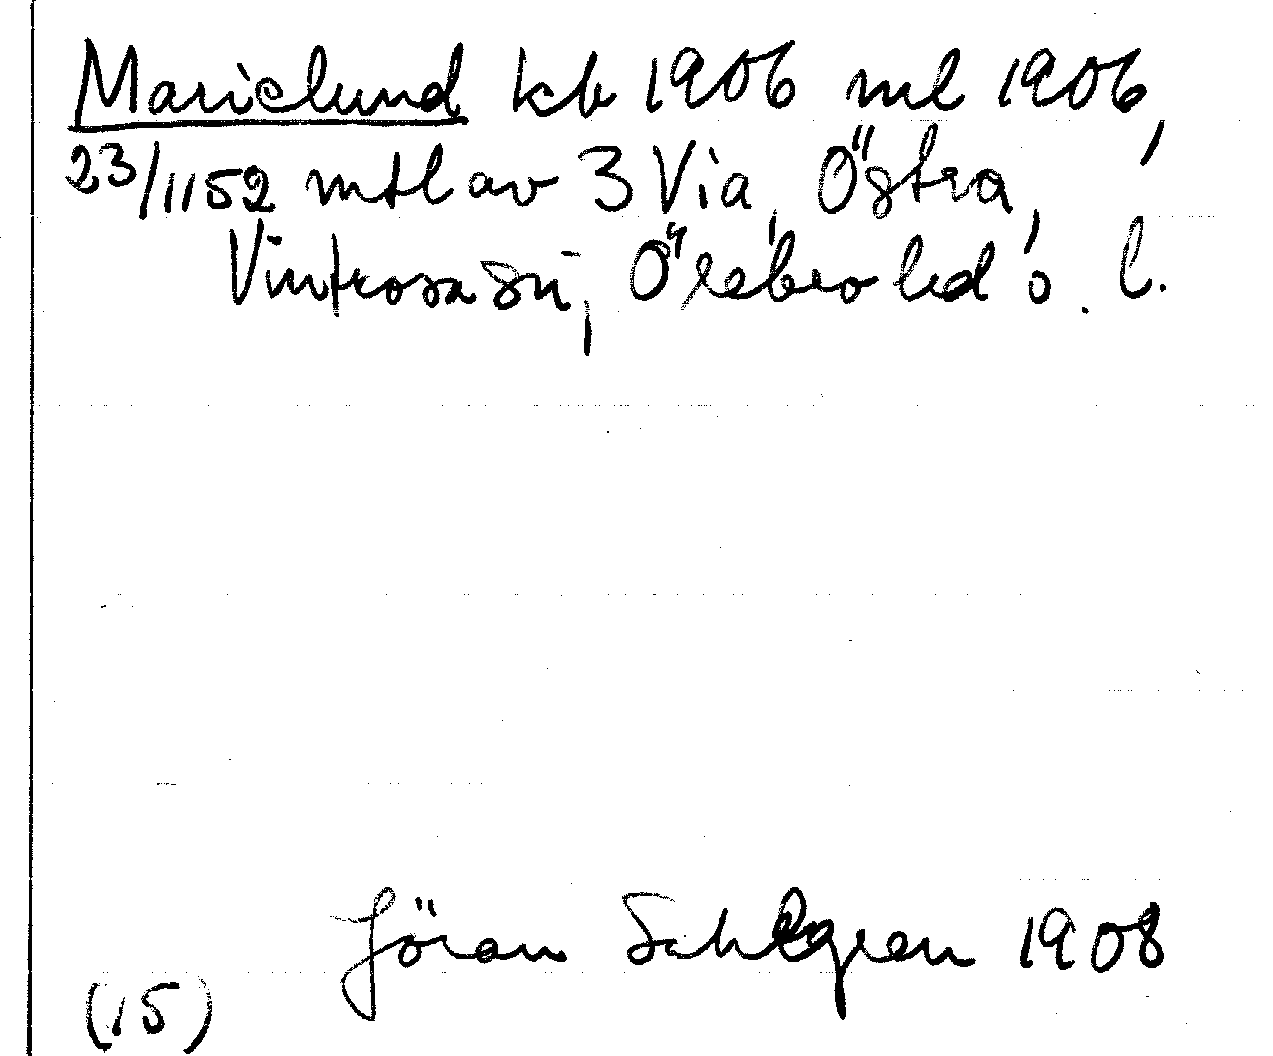 Marielund kb 1906 ml 1906,
23/1152 mtl av 3 Via, Östra,
Vintrosa sn, Örebro hd ö. l.
Jöran Sahlgren 1908
(15)